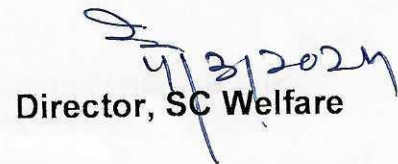 4/3/2024
Director, SC Welfare